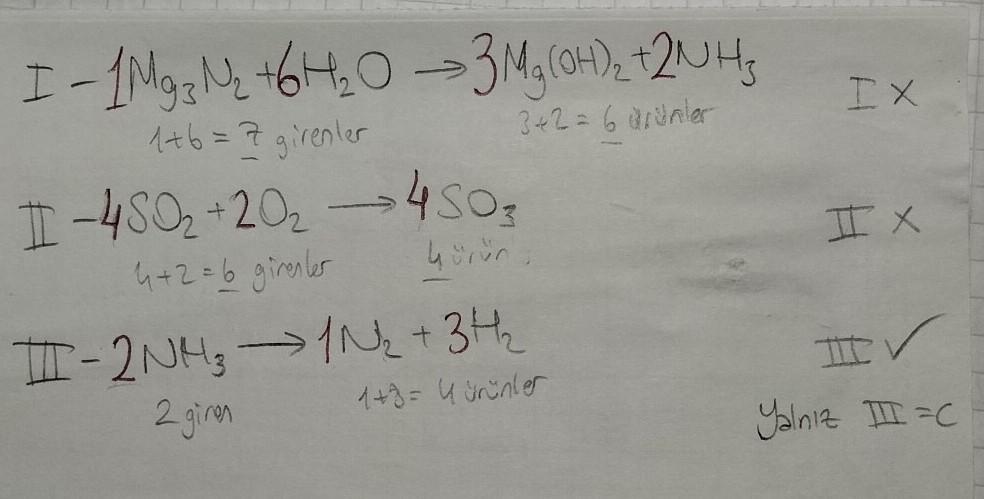 I - 1Mg₃N₂ + 6H₂O → 3Mg(OH)₂ + 2NH₃
1+6 = 7 girenler
3+2 = 6 ürünler
I X
II - 4SO₂ + 2O₂ → 4SO₃
4+2 = 6 girenler
4 ürün
II X
III - 2NH₃ → 1N₂ + 3H₂
2 giren
1+3 = 4 ürünler
III ✓
Yalnız III = C